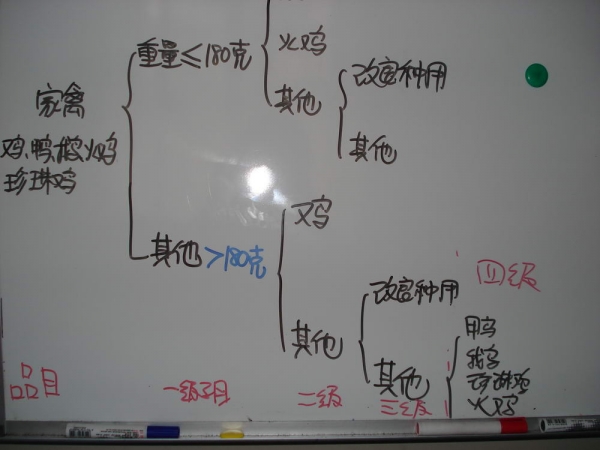 火鸡
重量≤180克
其他
改良种用
其他
家禽
鸡,鸭,鹅,火鸡
珍珠鸡
鸡
其他>180克
改良种用
其他
其他
四级
鸭
鹅
珍珠鸡
火鸡
品目
一级子目
二级
三级